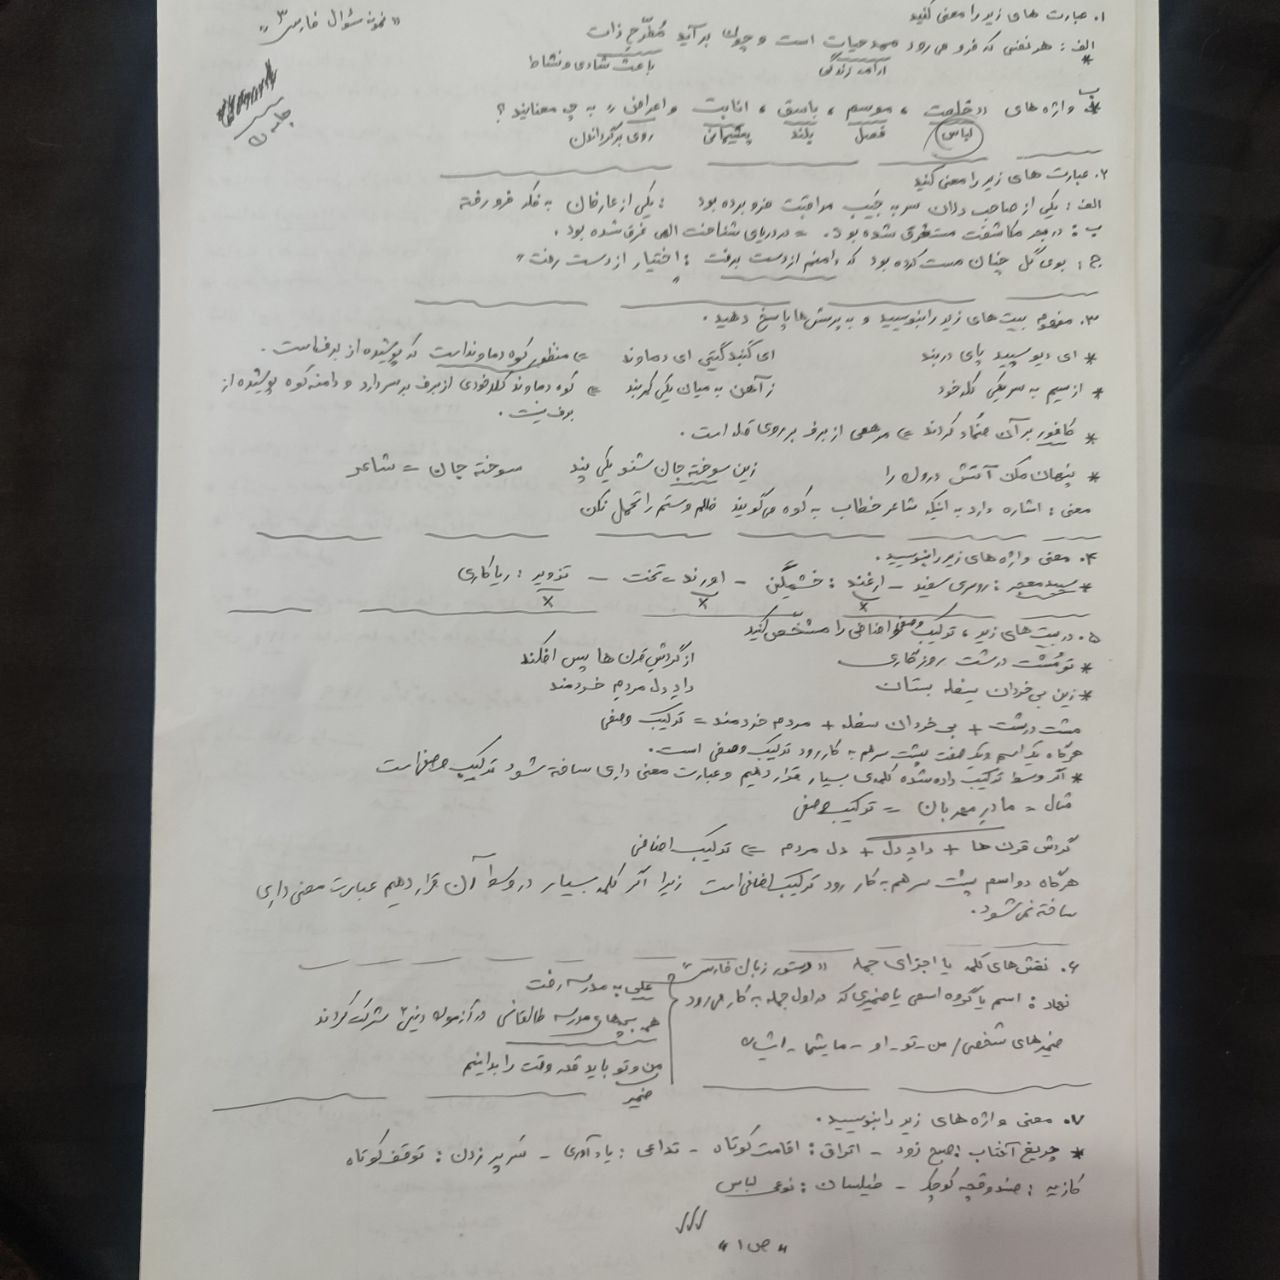 «نمونه سئوال فارسی ۳»
جلسه ۵
۱. عبارت های زیر را معنی کنید
الف: هر نفسی که فرو می رود ممد حیات است و چون بر آید مُفَرّحِ ذات
ادامه زندگی باعث شادی و نشاط
ب
* واژه های «خلعت، موسم، باسق، انابت و اعراض» به چه معنایند؟
لباس فصل بلند پشیمانی روی برگرداندن
۲. عبارت های زیر را معنی کنید
الف: یکی از صاحب دلان سر به جَیب مراقبت فرو برده بود : یکی از عارفان به فکر فرو رفته
ب: در بحر مکاشفت مستغرق شده بود. = در دریای شناخت الهی غرق شده بود.
ج: بوی گل چنان مست کرده بود که دامنم از دست برفت : "اختیار از دست رفت"
۳. مفهوم بیت های زیر را بنویسید و به پرسش ها پاسخ دهید.
* ای دیو سپید پای در بند ای گنبد گیتی ای دماوند = منظور کوه دماوند است که پوشیده از برف است.
* از سیم به سر یکی کله خود ز آهن به میان یکی کمربند = کوه دماوند کلاه خودی از برف بر سر دارد و دامنه کوه پوشیده از
برف نیست.
* کافور بر آن ضِماد کردند = مرهمی از برف بر روی قله است.
* پنهان مکن آتش درون را زین سوخته جان شنو یکی پند سوخته جان = شاعر
معنی: اشاره دارد به اینکه شاعر خطاب به کوه می گویند ظلم و ستم را تحمل نکن
۴. معنی واژه های زیر را بنویسید.
* سپید معجر: روسری سفید - ارغند: خشمگین - اورند = تخت - تزویر: ریاکاری
x x x
۵. در بیت های زیر، ترکیب وصفی و اضافی را مشخّص کنید
* تو مُشت درشت روزگاری از گردش قرن ها پس افکند
* زین بی خردان سفله بستان داد دل مردم خردمند
مشت درشت + بی خردان سفله + مردم خردمند = ترکیب وصفی
هرگاه یک اسم و یک صفت پشت سر هم به کار رود ترکیب وصفی است.
* اگر وسط ترکیب داده شده کلمه ی بسیار قرار دهیم و عبارت معنی داری ساخته شود ترکیب وصفی است
مثال = مادرِ مهربان = ترکیب وصفی
گردش قرن ها + دادِ دل + دل مردم = ترکیب اضافی
هرگاه دو اسم پشت سر هم به کار رود ترکیب اضافی است زیرا اگر کلمه بسیار در وسط آن قرار دهیم عبارت معنی داری
ساخته نمی شود.
۶. نقش های کلمه یا اجزای جمله «دستور زبان فارسی»
نهاد: اسم یا گروه اسمی یا ضمیری که در اول جمله به کار می رود
ضمیرهای شخصی / من - تو - او - ما - شما - ایشان
علی به مدرسه رفت
همه بچه های مدرسه طالقانی در آزمون دینی شرکت کردند
من و تو باید قدر وقت را بدانیم
ضمیر
۷. معنی واژه های زیر را بنویسید.
* چریغ آفتاب: صبح زود - اتراق: اقامت کوتاه - تداعی: یادآوری - سَرپر زدن: توقف کوتاه
کازیه: صندوقچه کوچک - طیلسان: نوعی لباس
"ص ۱"